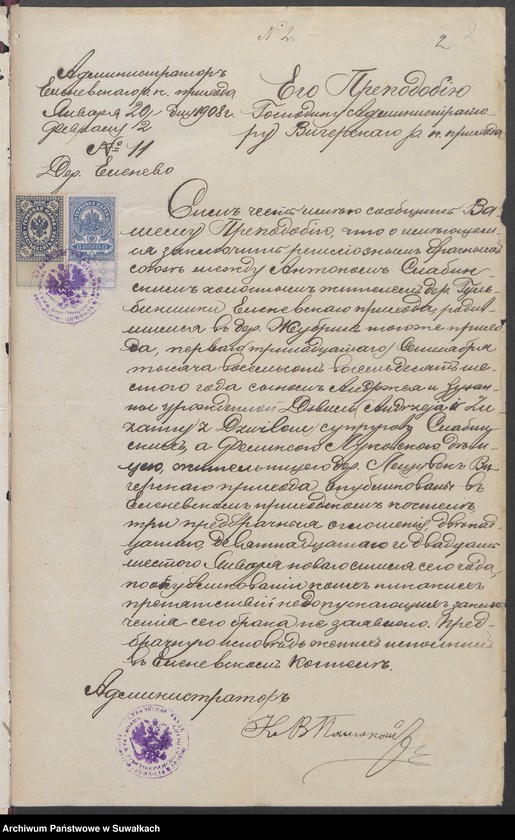 № 2.
2 2
Администраторъ
Еленевскаго р. к. прихода
Января 20 дня 1908 г.
Февраля 2
№ 11
Дер. Еленево
Его Преподобію
Господину Администрато-
ру Вигерскаго р. к. прихода
Симъ честь имѣю сообщить Ва-
шему Преподобію, что о имѣющем-
ся заключить религіозный брачный
союзъ между Антономъ Слабин-
скимъ холостымъ жителемъ дер. Гуль-
бинишки Еленевскаго прихода, родив-
шимся въ дер. Жубрин тогоже прихо-
да, перваго тринадцатаго Сентября
тысяча восемьсотъ восемьдесятъ ше-
стого года сыномъ Анджея и Зузан-
ны урожденной Andrzeja i Zu-
zanny z супруговъ Слабин-
скихъ, а Феликсою Луковскою дѣви-
цею, жительницею дер. Лещувекъ Ви-
герскаго прихода опубликованы въ
Еленевскомъ приходскомъ костелѣ
три предбрачныя оглашенія, двѣнад-
цатаго, девятнадцатаго и двадцать
шестого Января новаго стиля сего года,
по опубликованіи коихъ никакихъ
препятствій недопускающихъ заклю-
ченія сего брака не заявлено. Пред-
брачную исповѣдь женихъ исполнилъ
въ Еленевскомъ костелѣ.
Администраторъ
Кс. В.
Archiwum Państwowe w Suwałkach